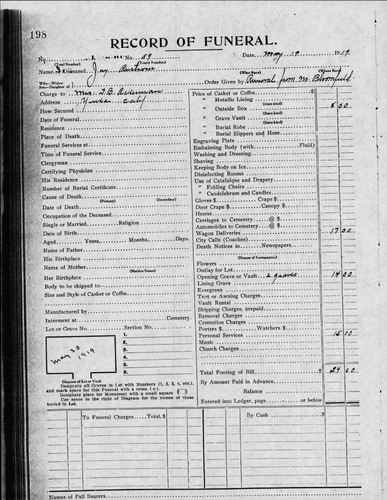 198
RECORD OF FUNERAL.
No. 2 59 Date May 19 1919
(Total Number) (Yearly Number)
Name of Deceased, Jay
(What State) (Where Born)
Wife—Widow—Son—Daughter of Order Given by Removal from Mt. Bloomfield
Charge to Mrs. J. B. Ackerman
Address
How Secured
Date of Funeral
Residence
Place of Death
Funeral Services at
Time of Funeral Service
Clergyman
Certifying Physician
His Residence
Number of Burial Certificate
Cause of Death
(Primary) (Secondary)
Date of Death
Occupation of the Deceased
Single or Married Religion
Date of Birth
Aged, Years, Months, Days.
Name of Father
His Birthplace
Name of Mother
(Maiden Name)
Her Birthplace
Body to be shipped to
Size and Style of Casket or Coffin
Manufactured by
Interment at Cemetery
Lot or Grave No. Section No.
May 20 1919
1.
2.
3.
4.
5.
6.
Diagram of Lot or Vault
Designate all Graves in Lot with Numbers (1, 2, 3, 4, etc.),
and mark space for this Funeral with a cross (+).
Designate place for Monument with a small square
Use space to the right of Diagram for the names of those
buried in Lot.
Price of Casket or Coffin $
" Metallic Lining
" Outside Box 8 00
" Grave Vault
" Burial Robe
" Burial Slippers and Hose
Engraving Plate
Embalming Body (with Fluid)
Washing and Dressing
Shaving
Keeping Body on Ice
Disinfecting Rooms
Use of Catafalque and Drapery
" Folding Chairs
" Candelabrum and Candles
Gloves $ Crape $
Door Crape $ Canopy $
Hearse
Carriages to Cemetery @ $
Automobiles to Cemetery @ $
Wagon Deliveries 17 00
City Calls (Coaches)
Death Notices in Newspapers
Flowers
Outlay for Lot
Opening Grave or Vault 2 graves 14 00
Lining Grave
Evergreen
Tent or Awning Charges
Vault Rental
Shipping Charges, prepaid
Removal Charges
Cremation Charges
Porters $ Watchers $
Personal Services 15 10
Music
Church Charges
Total Footing of Bill $ 54 00
By Amount Paid in Advance
Balance
Entered into Ledger, page or below
To Funeral Charges, Total, $ By Cash $
Names of Pall Bearers